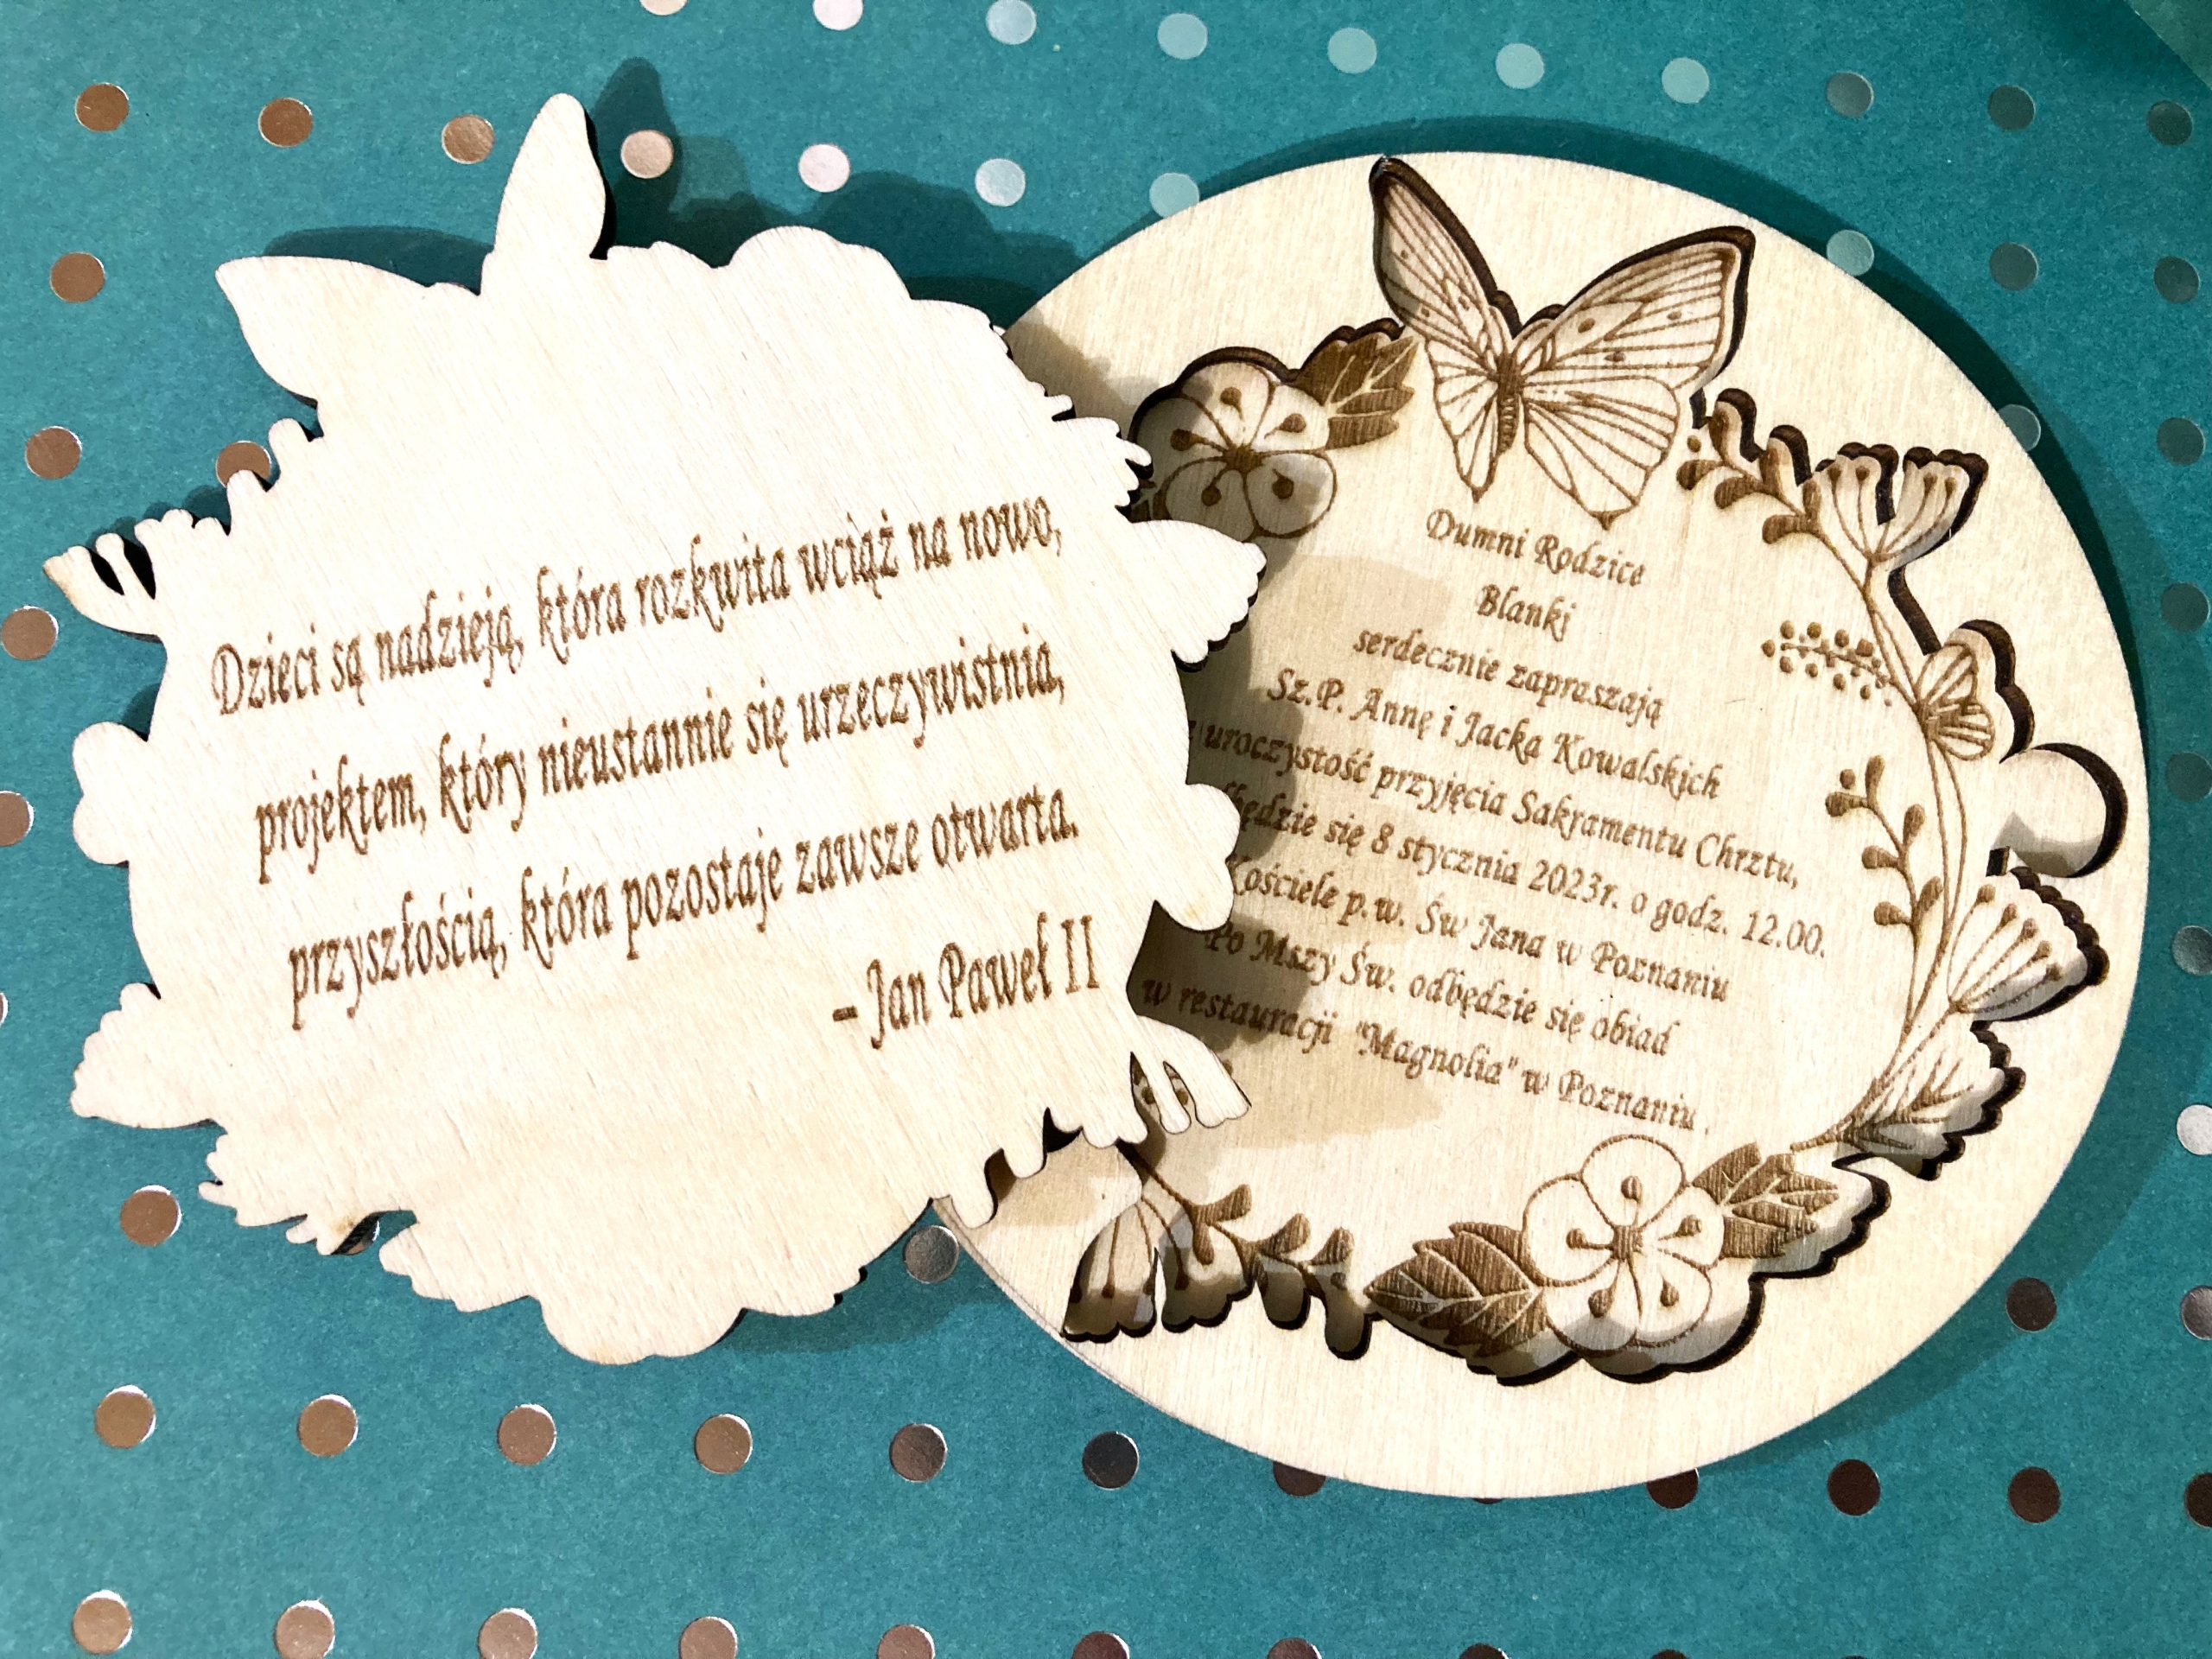 Dzieci są nadzieją, która rozkwita wciąż na nowo,
projektem, który nieustannie się urzeczywistnia,
przyszłością, która pozostaje zawsze otwarta.
– Jan Paweł II
Dumni Rodzice
Blanki
serdecznie zapraszają
Sz.P. Annę i Jacka Kowalskich
uroczystość przyjęcia Sakramentu Chrztu,
się 8 stycznia 2023r. o godz. 12.00.
Kościele p.w. Św Jana w Poznaniu
Po Mszy Św. odbędzie się obiad
w restauracji "Magnolia" w Poznaniu.